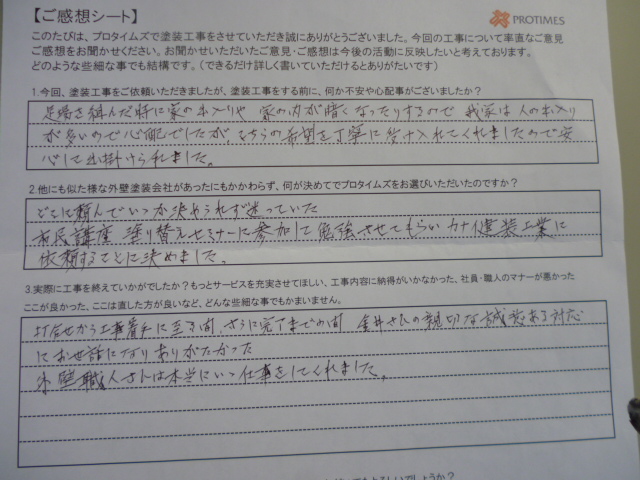 【ご感想シート】
PROTIMES
このたびは、プロタイムズで塗装工事をさせていただき誠にありがとうございました。今回の工事について率直なご意見
ご感想をお聞かせください。お聞かせいただいたご意見・ご感想は今後の活動に反映したいと考えております。
どのような些細な事でも結構です。（できるだけ詳しく書いていただけるとありがたいです）
1.今回、塗装工事をご依頼いただきましたが、塗装工事をする前に、何か不安や心配事がございましたか？
足場を組んだ時に家の出入りや 家の内が暗くなったりするので 我家は人の出入り
が多いので心配でしたが、こちらの希望を丁寧に受け入れてくれましたので安
心して出掛けられました。
2.他にも似た様な外壁塗装会社があったにもかかわらず、何が決めてでプロタイムズをお選びいただいたのですか？
どこに頼んでいいか決められず迷っていた
市民講座 塗り替えセミナーに参加して勉強させてもらい カナイ建装工業に
依頼することに決めました。
3.実際に工事を終えていかがでしたか？もっとサービスを充実させてほしい、工事内容に納得がいかなかった、社員・職人のマナーが悪かった
ここが良かった、ここは直した方が良いなど、どんな些細な事でもかまいません。
打合せから工事着手に至る間、さらに完了までの間 金井さんの親切な誠意ある対応
にお世話になりありがたかった
外壁職人さんは本当にいい仕事をしてくれました。